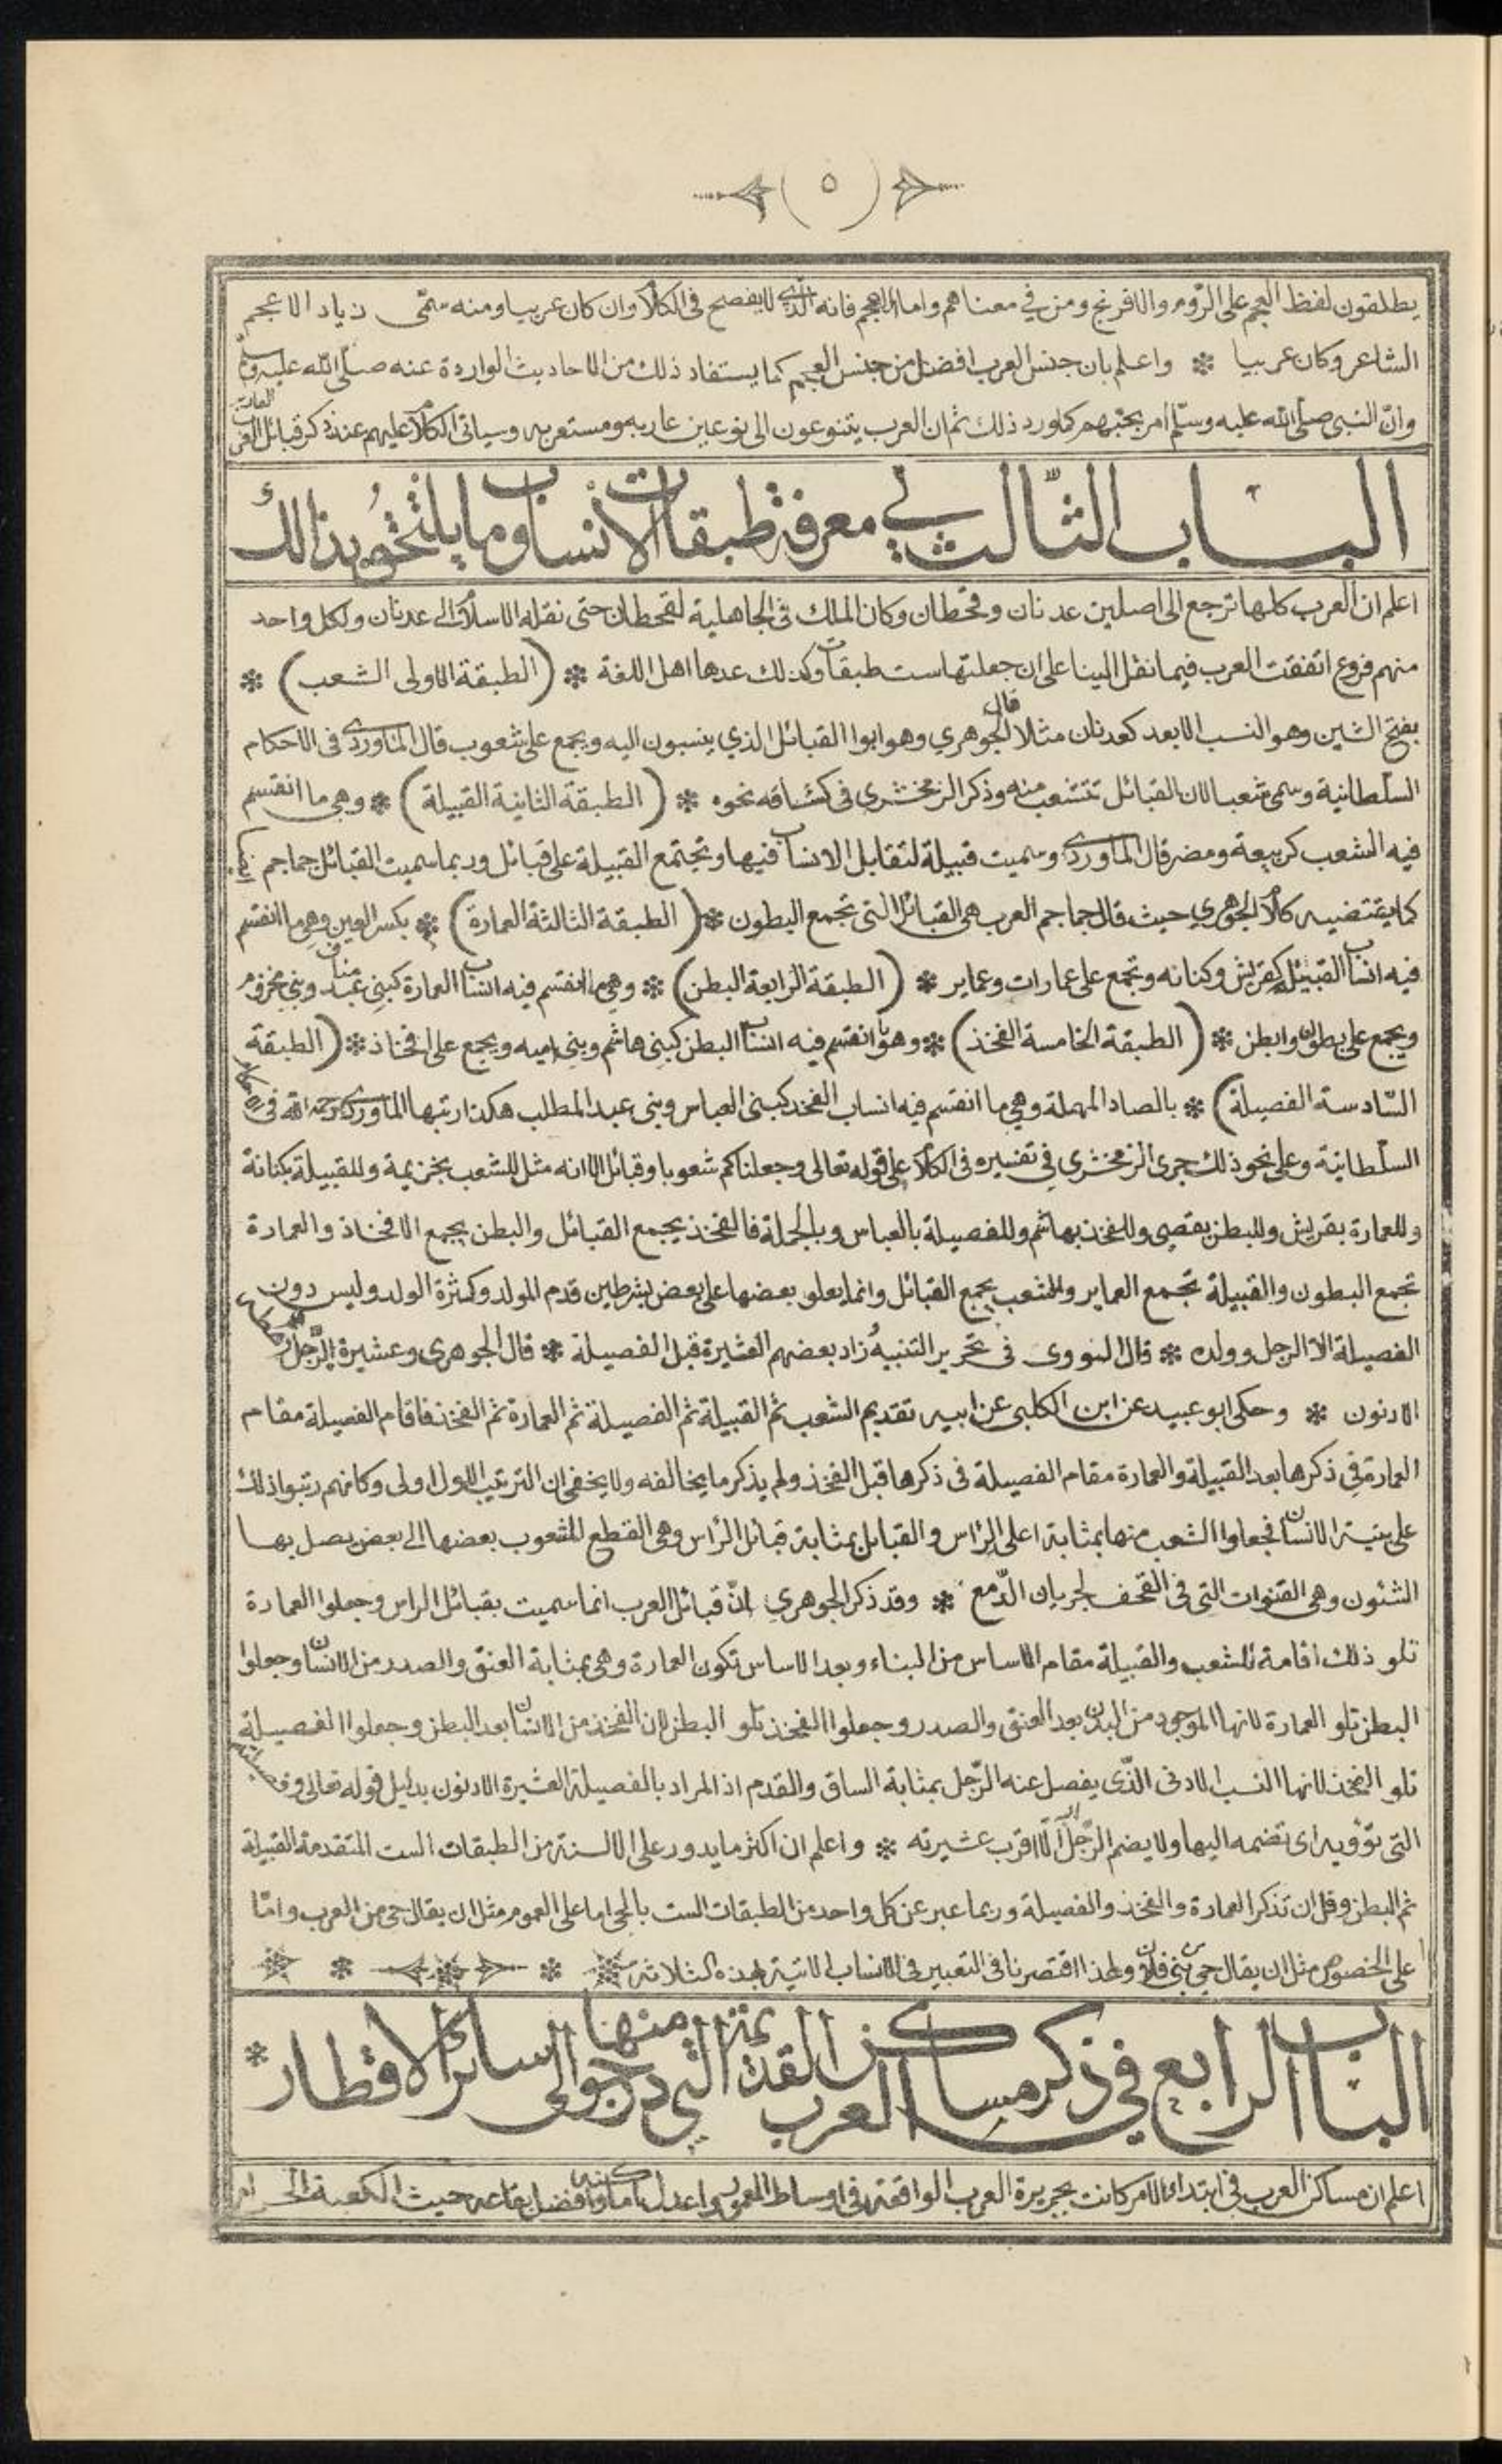 (٥)
يطلقون لفظ العجم على الروم والافرنج ومن في معناهم واما الاعجم فانه الذي لا يفصح فى الكلام وان كان عربيا ومنه سمّى زياد الاعجم
الشاعر وكان عربيا * واعلم بان جنس العرب افضل من جنس العجم كما يستفاد ذلك من الاحاديث الواردة عنه صلّى الله عليه وسلم
وانّ النبى صلى الله عليه وسلّم امر بحبّهم كما ورد ذلك ثم ان العرب يتنوعون الى نوعين عاربه ومستعربه وسياتى الكلام عليهم عند ذكر قبائل العرب العاربة
الباب الثّالث في معرفة طبقات الانساب وما يلتحق بذالك
اعلم ان العرب كلها ترجع الى اصلين عدنان وقحطان وكان الملك فى الجاهلية لقحطان حتى نقله الاسلام الى عدنان ولكل واحد
منهم فروع اتفقت العرب فيما نقل الينا على ان جعلتها ست طبقات وكذلك عدها اهل اللغة * (الطبقة الاولى الشعب) *
بفتح الشين وهو النسب الابعد كعدنان مثلا قال الجوهري وهو ابوا القبائل الذي ينسبون اليه ويجمع على شعوب قال الماوردى فى الاحكام
السلطانية وسمى شعبا لان القبائل تتشعب منه وذكر الزمخشرى فى كشافه نحوه * (الطبقة الثانية القبيلة) * وهى ما انقسم
فيه الشعب كربيعة ومضر قال الماوردى وسميت قبيلة لتقابل الانساب فيها وتجتمع القبيلة على قبائل وربما سميت القبائل جماجم
كما يقتضيه كلام الجوهري حيث قال جماجم العرب هى القبائل التى تجمع البطون * (الطبقة الثالثة العمارة) * بكسر العين وهى ما انقسم
فيه انساب القبيلة كقريش وكنانه وتجمع على عمارات وعماير * (الطبقة الرابعة البطن) * وهي ما انقسم فيه انساب العمارة كبنى عبد مناف وبني مخزوم
ويجمع على بطون وابطن * (الطبقة الخامسة الفخذ) * وهو ما انقسم فيه انساب البطن كبنى هاشم وبنى اميه ويجمع على افخاذ * (الطبقة
السّادسة الفصيلة) * بالصاد المهملة وهي ما انقسم فيه انساب الفخذ كبنى العباس وبنى عبد المطلب هكذا رتبها الماوردى رحمه الله فى الاحكام
السلطانية وعلى نحو ذلك جرى الزمخشري في تفسيره فى الكلام على قوله تعالى وجعلناكم شعوبا وقبائل الا انه مثل للشعب بخزيمة وللقبيلة بكنانة
وللعمارة بقريش وللبطن بقصي وللفخذ بهاشم وللفصيلة بالعباس وبالجملة فالفخذ يجمع القبائل والبطن يجمع الافخاذ والعمارة
تجمع البطون والقبيلة تجمع العماير والشعب يجمع القبائل وانما يعلو بعضها على بعض بشرطين قدم المولد وكثرة الولد وليس دون
الفصيلة الا الرجل وولده * قال النووى فى تحرير التنبيه زاد بعضهم العشيرة قبل الفصيلة * قال الجوهرى وعشيرة الرّجل رهطه
الادنون * وحكى ابو عبيد عن ابن الكلبى عن ابيه تقديم الشعب ثم القبيلة ثم الفصيلة ثم العمارة ثم الفخذ فاقام الفصيلة مقام
العمارة فى ذكرها بعد القبيلة والعمارة مقام الفصيلة فى ذكرها قبل الفخذ ولم يذكر ما يخالفه ولا يخفى ان الترتيب الاول اولى وكانهم رتبوا ذلك
على بنية الانسان فجعلوا الشعب منها بمثابة اعلى الرأس والقبائل بمثابة قبائل الرأس وهى القطع المشعوب بعضها الى بعض يصل بها
الشئون وهى القنوات التى فى القحف لجريان الدّمع * وقد ذكر الجوهري انّ قبائل العرب انما سميت بقبائل الراس وجعلوا العمارة
تلو ذلك اقامة للشعب والقبيلة مقام الاساس من البناء وبعد الاساس تكون العمارة وهى بمثابة العنق والصدر من الانسان وجعلوا
البطن تلو العمارة لانها الموجود من البدن بعد العنق والصدر وجعلوا الفخذ تلو البطن لان الفخذ من الانسان بعد البطن وجعلوا الفصيلة
تلو الفخذ لانها النسب الادنى الذّى يفصل عنه الرّجل بمثابة الساق والقدم اذ المراد بالفصيلة العشيرة الادنون بدليل قوله تعالى وفصيلته
التى تؤويه اى تضمه اليها ولا يضم الرّجل اليه الّا اقرب عشيرته * واعلم ان اكثر ما يدور على الالسنة من الطبقات الست المتقدمة القبيلة
ثم البطن وقل ان تذكر العمارة والفخذ والفصيلة وربما عبر عن كل واحد من الطبقات الست بالحى اما على العموم مثل ان يقال حى من العرب وامّا
على الخصوص مثل ان يقال حى من بنى فلان ولهذا اقتصرنا فى التعبير فى الانساب الاتية بهذه الثلاثة * * * *
الباب الرابع في ذكر مساكن العرب القديمة التي درجوا منها الى سائر الاقطار *
اعلم ان مساكن العرب فى ابتداء الامر كانت بجزيرة العرب الواقعة فى اوساط المعمور واعدل اماكنه وافضل بقاعه حيث الكعبة الحرام